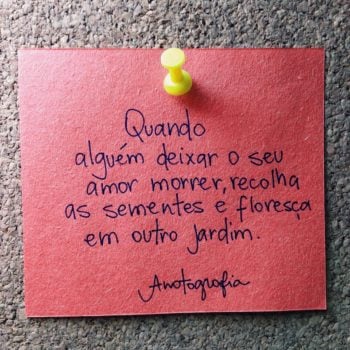 Quando
alguém deixar o seu
amor morrer, recolha
as sementes e floresça
em outro jardim.
Anotografia